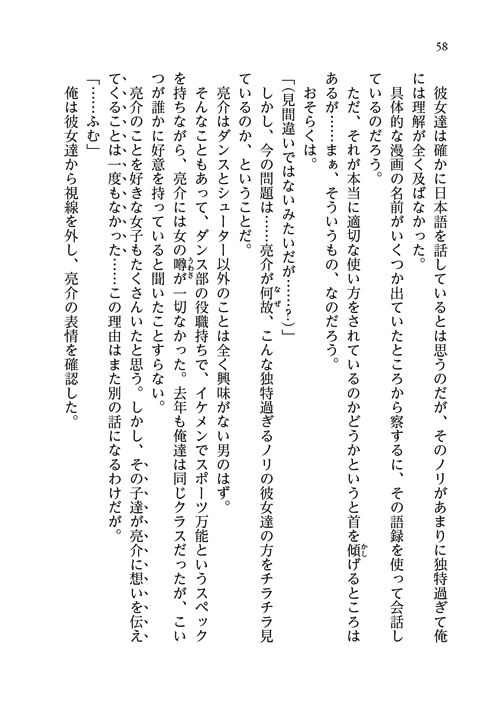 58
彼女達は確かに日本語を話しているとは思うのだが、そのノリがあまりに独特過ぎて俺
には理解が全く及ばなかった。
具体的な漫画の名前がいくつか出ていたところから察するに、その語録を使って会話し
ているのだろう。
ただ、それが本当に適切な使い方をされているのかどうかというと首を傾げるところは
あるが……まぁ、そういうもの、なのだろう。
おそらくは。
「(見間違いではないみたいだが……?)」
しかし、今の問題は……亮介が何故、こんな独特過ぎるノリの彼女達の方をチラチラ見
ているのか、ということだ。
亮介はダンスとシューター以外のことは全く興味がない男のはず。
そんなこともあって、ダンス部の役職持ちで、イケメンでスポーツ万能というスペック
を持ちながら、亮介には女の噂が一切なかった。去年も俺達は同じクラスだったが、こい
つが誰かに好意を持っていると聞いたことすらない。
亮介のことを好きな女子もたくさんいたと思う。しかし、その子達が亮介に想いを伝え
てくることは一度もなかった……この理由はまた別の話になるわけだが。
「……ふむ」
俺は彼女達から視線を外し、亮介の表情を確認した。